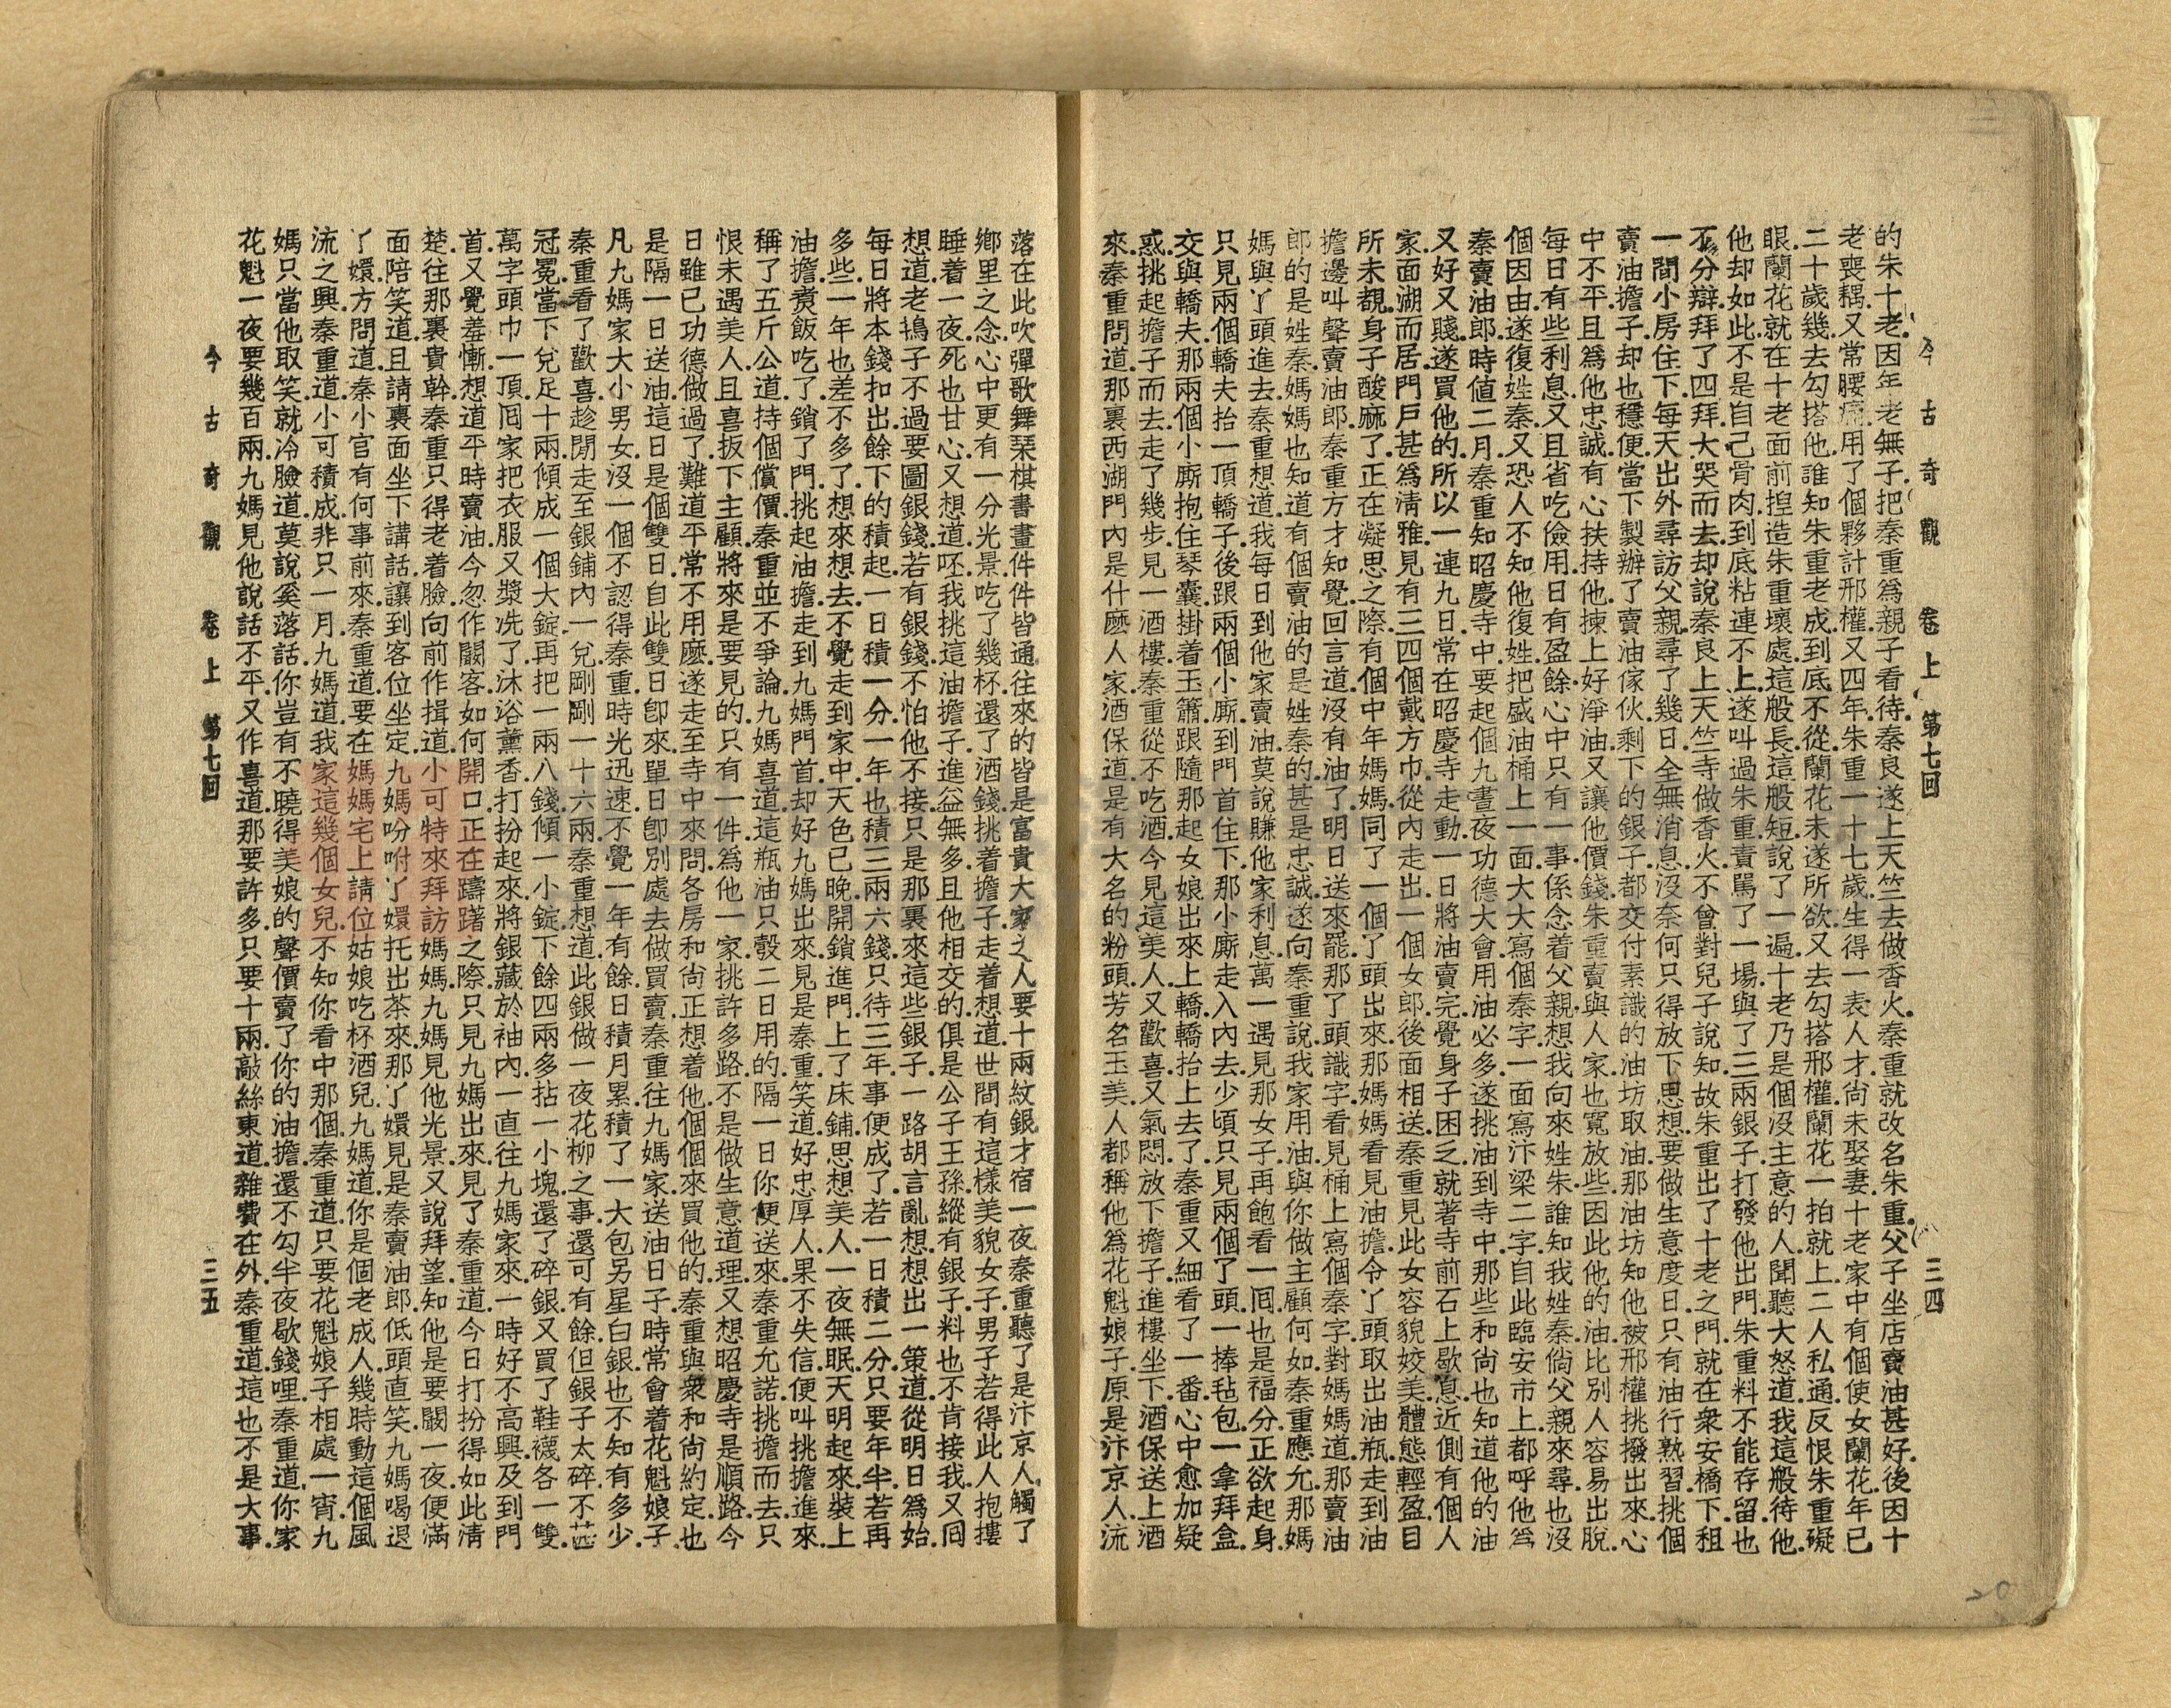 今古奇觀　卷上　第七回　三四
的朱十老.因年老無子.把秦重爲親子看待.秦良遂上天竺去做香火.秦重就改名朱重.父子坐店賣油甚好.後因十
老喪耦.又常腰痛.用了個夥計邢權.又四年.朱重一十七歲.生得一表人才.尚未娶妻.十老家中有個使女蘭花.年已
二十歲.幾去勾搭他.誰知朱重老成.到底不從.蘭花未遂所欲.又去勾搭邢權.蘭花一拍就上.二人私通.反恨朱重礙
眼.蘭花就在十老面前揑造朱重壞處.這般長.這般短.說了一遍.十老乃是個沒主意的人.聞聽大怒道.我這般待他.
他却如此.不是自己骨肉.到底粘連不上.遂叫過朱重.責罵了一場.與了三兩銀子.打發他出門.朱重料不能存留.也
不分辯.拜了四拜.大哭而去.却說秦良上天竺寺做香火.不曾對兒子說知.故朱重出了十老之門.就在衆安橋下.租
一間小房住下.每天出外尋訪父親.尋了幾日.全無消息.沒奈何只得放下思想.要做生意度日.只有油行熟習.挑個
賣油擔子.却也穩便.當下製辦了賣油傢伙.剩下的銀子.都交付素識的油坊取油.那油坊知他被邢權挑撥出來.心
中不平.且爲他忠誠.有心扶持他.揀上好淨油.又讓他價錢.朱重賣與人家.也寬放些.因此他的油.比別人容易出脫.
每日有些利息.又且省吃儉用.日有盈餘.心中只有一事.係念着父親.想我向來姓朱.誰知我姓秦.倘父親來尋.也沒
個因由.遂復姓秦.又恐人不知他復姓.把盛油桶上.一面大大寫個秦字.一面寫汴梁二字.自此臨安市上.都呼他爲
秦賣油郎.時値二月.秦重知昭慶寺中.要起個九晝夜功德大會.用油必多.遂挑油到寺中.那些和尚也知道他的油
又好又賤.遂買他的.所以一連九日.常在昭慶寺走動.一日將油賣完.覺身子困乏.就著寺前石上歇息.近側有個人
家.面湖而居.門戶甚爲淸雅.見有三四個戴方巾.從內走出.一個女郎.後面相送.秦重見此女容貌姣美.體態輕盈.目
所未覩.身子酥麻了.正在凝思之際.有個中年媽媽.同了一個丫頭出來.那媽媽看見油擔.令丫頭取出油瓶.走到油
擔邊.叫聲賣油郎.秦重方才知覺.回言道.沒有油了.明日送來罷.那丫頭識字.看見桶上寫個秦字.對媽媽道.那賣油
郎的是姓秦.媽媽也知道有個賣油的.是姓秦的.甚是忠誠.遂向秦重說.我家用油.與你做主顧何如.秦重應允.那媽
媽與丫頭進去.秦重想道.我每日到他家賣油.莫說賺他家利息.萬一遇見那女子.再飽看一囘.也是福分.正欲起身.
只見兩個轎夫.抬一頂轎子.後跟兩個小廝.到門首住下.那小廝走入內去.少頃.只見兩個丫頭.一捧毡包.一拿拜盒.
交與轎夫.那兩個小廝.抱住琴囊.掛着玉簫.跟隨那起女娘出來上轎.轎抬上去了.秦重又細看了一番.心中愈加疑
惑.挑起擔子而去.走了幾步.見一酒樓.秦重從不吃酒.今見這美人.又歡喜.又氣悶.放下擔子.進樓坐下.酒保送上酒
來.秦重問道.那裏西湖門內.是什麽人家.酒保道.是有大名的粉頭.芳名玉美.人都稱他爲花魁娘子.原是汴京人.流
落在此.吹彈歌舞.琹棋書畫.件件皆通.往來的皆是富貴大家之人.要十兩紋銀.才宿一夜.秦重聽了.是汴京人.觸了
鄉里之念.心中更有一分光景.吃了幾杯.還了酒錢.挑着擔子.走着想道.世間有這樣美貌女子.男子若得此人抱摟
睡着一夜.死也甘心.又想道.呸.我挑這油擔子.進益無多.且他相交的.俱是公子王孫.縱有銀子.料也不肯接我.又囘
想道.老鴇子不過要圖銀錢.若有銀錢.不怕他不接.只是那裏來這些銀子.一路胡言亂想.想出一策道.從明日爲始.
每日將本錢扣出.餘下的積起.一日積一分.一年也積三兩六錢.只待三年.事便成了.若一日積二分.只要年半.若再
多些.一年也差不多了.想來想去.不覺走到家中.天色已晚.開鎖進門.上了床鋪.思想美人.一夜無眠.天明起來.裝上
油擔.煑飯吃了.鎖了門.挑起油擔.走到九媽門首.却好九媽出來.見是秦重.笑道.好忠厚人.果不失信.便叫挑擔進來.
稱了五斤.公道持個償價.秦重並不爭論.九媽喜道.這瓶油.只彀二日用的.隔一日你便送來.秦重允諾.挑擔而去.只
恨未遇美人.且喜扳下主顧.將來是要見的.只有一件.爲他一家.挑許多路.不是做生意道理.又想昭慶寺是順路.今
日雖已功德做過了.難道平常不用麽.遂走至寺中來問.各房和尚.正想着他.個個來買他的.秦重與衆和尚約定.也
是隔一日送油.這日是個雙日.自此雙日卽來.單日卽別處去做買賣.秦重往九媽家送油日子.時常會着花魁娘子.
凡九媽家大小男女.沒一個不認得秦重.時光迅速.不覺一年有餘.日積月累.積了一大包另星白銀.也不知有多少.
秦重看了歡喜.趁閒走至銀鋪內一兌.剛剛一十六兩.秦重想道.此銀做一夜花柳之事.還可有餘.但銀子太碎.不
冠冕.當下兌足十兩.傾成一個大錠.再把一兩八錢.傾一小錠.下餘四兩多.拈一小塊.還了碎銀.又買了鞋襪各一雙.
萬字頭巾一頂.囘家把衣服.又漿洗了.沐浴薰香.打扮起來.將銀藏於袖內.一直往九媽家來.一時好不高興.及到門
首.又覺羞慚.想道.平時賣油.今忽作闞客.如何開口.正在躊躇之際.只見九媽出來.見了秦重道.今日打扮得如此清
楚.往那裏貴幹.秦重只得老着臉.向前作揖道.小可特來拜訪媽媽.九媽見他光景.又說拜望.知他是要闞一夜.便滿
面陪笑道.且請裏面坐下講話.讓到客位坐定.九媽吩咐丫嬛.托出茶來.那丫嬛見是秦賣油郎.低頭直笑.九媽喝退
丫嬛.方問道.秦小官有何事前來.秦重道.要在媽媽宅上.請位姑娘吃杯酒兒.九媽道.你是個老成人.幾時動這個風
流之興.秦重道.小可積成.非只一月.九媽道.我家這幾個女兒.不知你看中那個.秦重道.只要花魁娘子.相處一宵.九
媽只當他取笑.就冷臉道.莫說奚落話.你豈有不曉得美娘的聲價.賣了你的油擔.還不勾半夜歇錢哩.秦重道.你家
花魁一夜.要幾百兩.九媽見他說話不平.又作喜道.那要許多.只要十兩.敲絲東道.雜費在外.秦重道.這也不是大事.
今古奇觀　卷上　第七回　三五
20